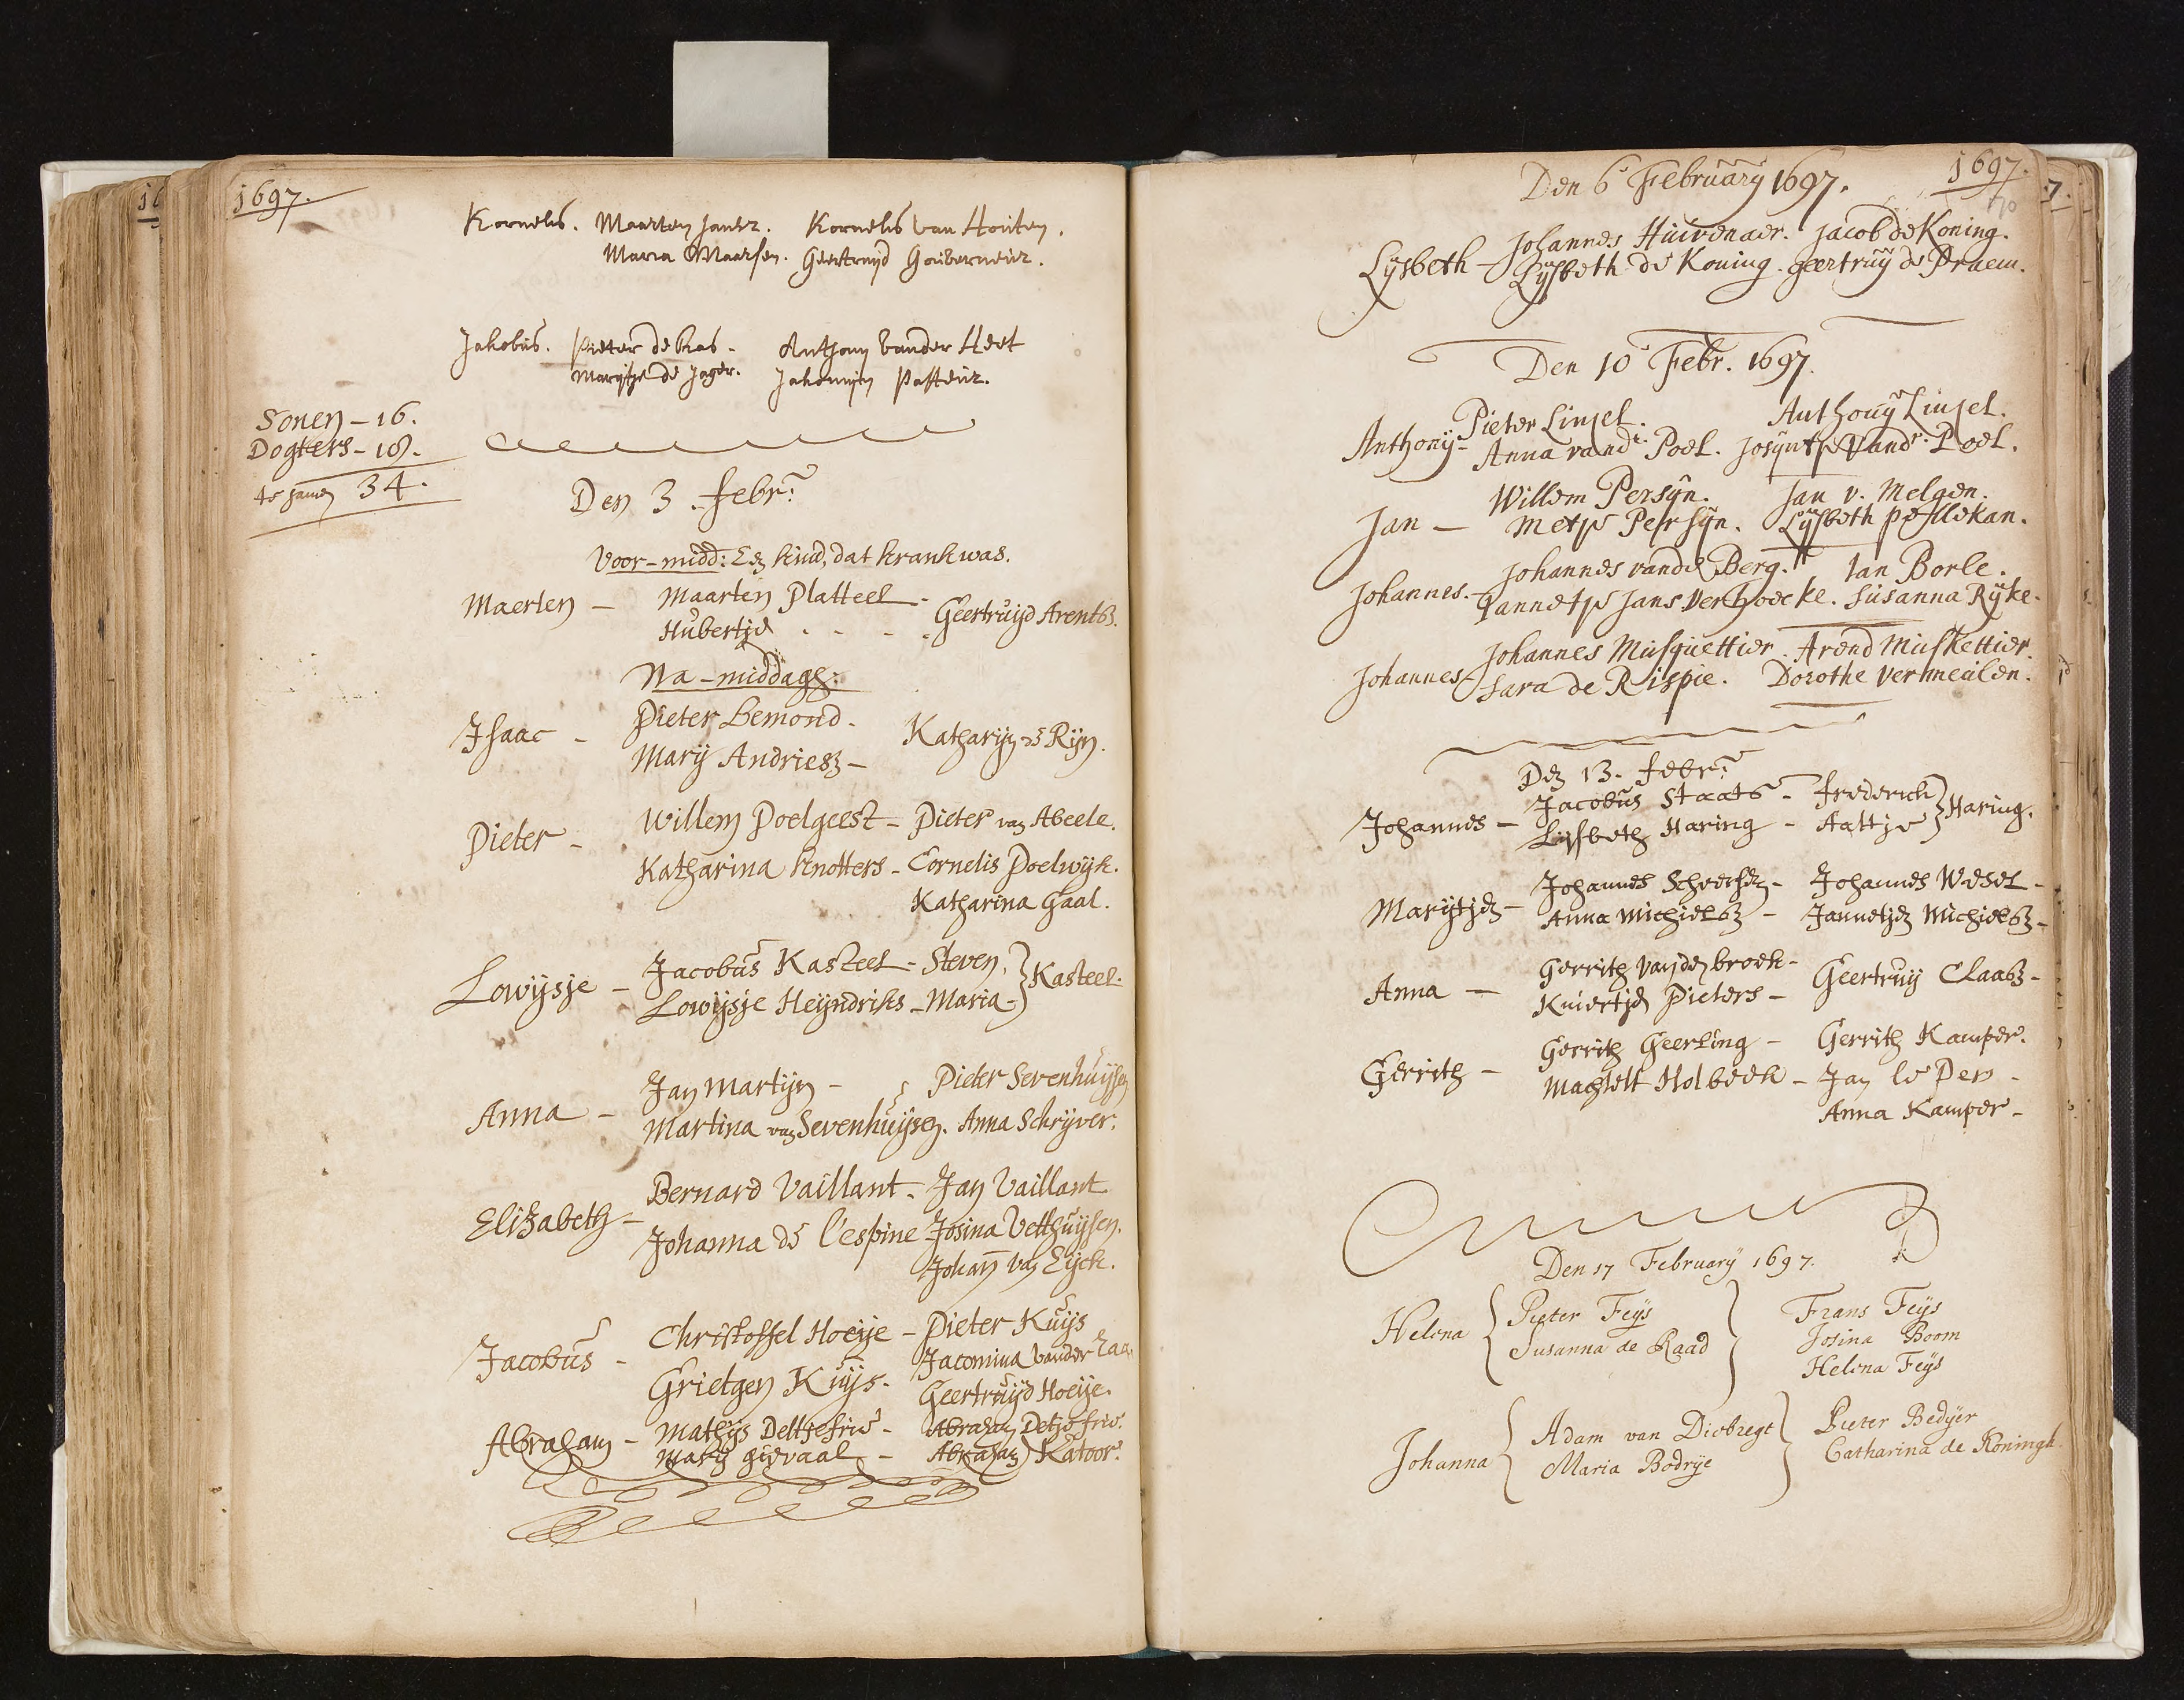 1697.
Kornelis. Maarten Jansz. Kornelis van Houten.
Maria Maarsen. Geertruyd Gouverneur.
Jakobus. Pieter de Bas - Anthony vander Heet
Marijtje de Jager. Jakomijn Pasteur.
Sonen - 16.
Dogters - 18.
te samen 34.
Den 3. febr:
Voor-midd: Een kind, dat krank was.
Maerten - Maarten Platteel -
Hubertje . - - . Geertruijd Arents.
Na-middagh:
Isaac - Pieter Lemond -
Marij Andriesz - Katharijn de Rijn.
Pieter - Willem Poelgeest - Pieter van Abeele.
Katharina Knotters - Cornelis Poelwijk.
Katharina Gaal.
Lowijsje - Jacobus Kasteel - Steven
Lowijsje Heijndriks - Maria - } Kasteel.
Anna - Jan Martijn - Pieter Sevenhuijsen
Martina van Sevenhuijsen. Anna Schrijver.
Elizabeth - Bernard Vaillant - Jan Vaillant
Johanna de l'espine Josina Velthuijsen.
Johan van Eijck.
Jacobus - Christoffel Hoeije - Pieter Kuijs
Grietgen Kuijs. Jacomina vander
Geertruijd Hoeije.
Abraham - Mathijs Deltjefrie - Abraham Detjefrie.
Marij gieraal - Abraham Katoor.
1697.
70
Den 6 February 1697.
Lijsbeth - Johannes Huivenaer. Jacob de Koning.
Lijsbeth de Koning. geertruij de Praem.
Den 10 Febr. 1697.
Anthonij - Pieter Linsel. Anthonij Linsel.
Anna vandr. Poel. Josijntje Vandr. Poel.
Jan - Willem Persijn. Jan v. Melgen.
Metje Persijn. Lijsbeth pellekan.
Johannes. - Johannes vande Berg. Jan Borle.
Jannetje Jans Verhoecke. Susanna Rijke.
Johannes - Johannes Musquettier. Arend Muskettier.
Sara de Rispie. Dorothe Vermeulen.
Den 13. febr:
Johannes - Jacobus Staats - frederick
Lijsbeth Haring - Aaltje } Haring.
Marijtje - Johannes - Johannes Wesel -
Anna Michielsz - Jannetje Michielsz -
Anna - Gerrith vanden broek -
Kniertje Pieters - Geertruij Claasz -
Gerrith - Gerrith Geerling - Gerrith Kamper.
Machtelt Holbeek - Jan le Pen -
Anna Kamper -
Den 17 February 1697.
Helena { Pieter Feijs } Frans Feijs
Susanna de Raad Josina Boom
Helena Feijs
Johanna { Adam van Diebregt } Pieter Bedijer
Maria Bodrije Catharina de Koningh.